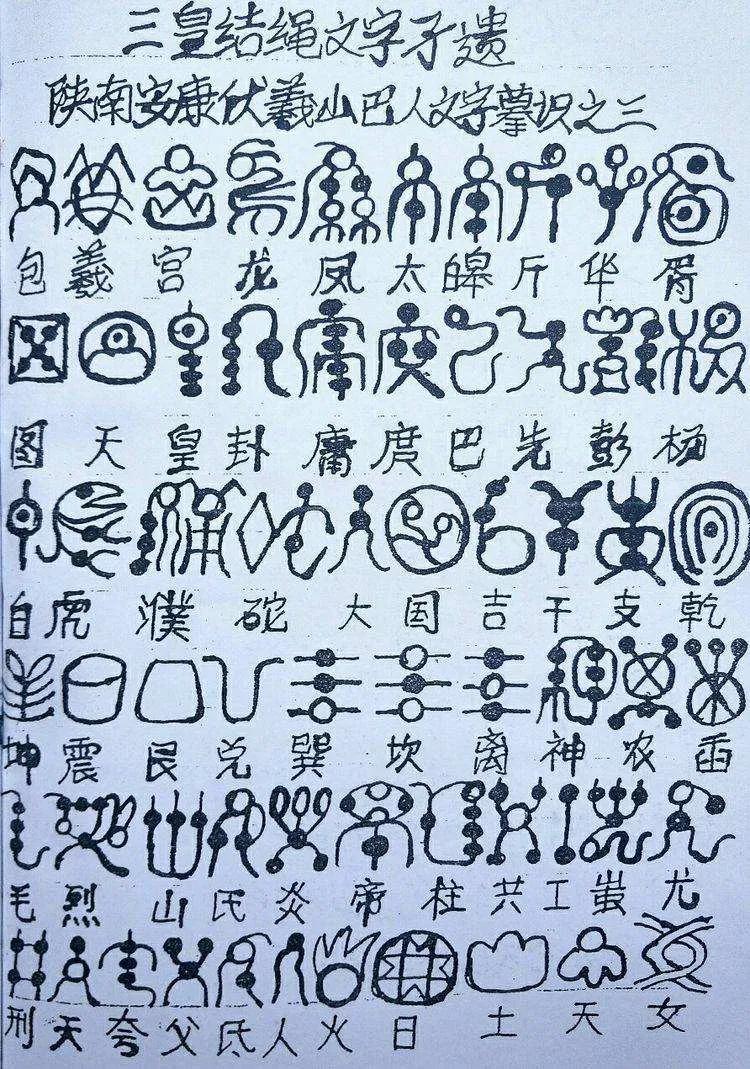 三皇结绳文字孑遗
陕南安康伏羲山巴人文字摹识之三
包羲宫龙凤太皞斤华胥
图天皇卦庸度巴先彭杨
自虎濮砣大国吉干支乾
坤震艮兑巽坎离神农
毛烈山氏炎帝柱共工蚩尤
刑天夸父氏人火日土天女